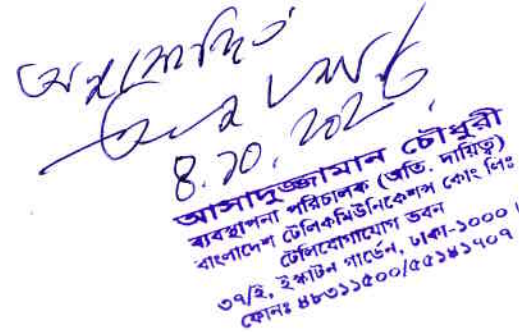 অনুমোদিত
আসাদুজ্জামান চৌধুরী
ব্যবস্থাপনা পরিচালক (অতি. দায়িত্ব)
বাংলাদেশ টেলিকমিউনিকেশন্স কোং লিঃ
টেলিযোগাযোগ ভবন
৩৭/ই, ইস্কাটন গার্ডেন, ঢাকা-১০০০।
ফোনঃ ৪৮৩১১৫০০/৫৫১৪১৭০৭